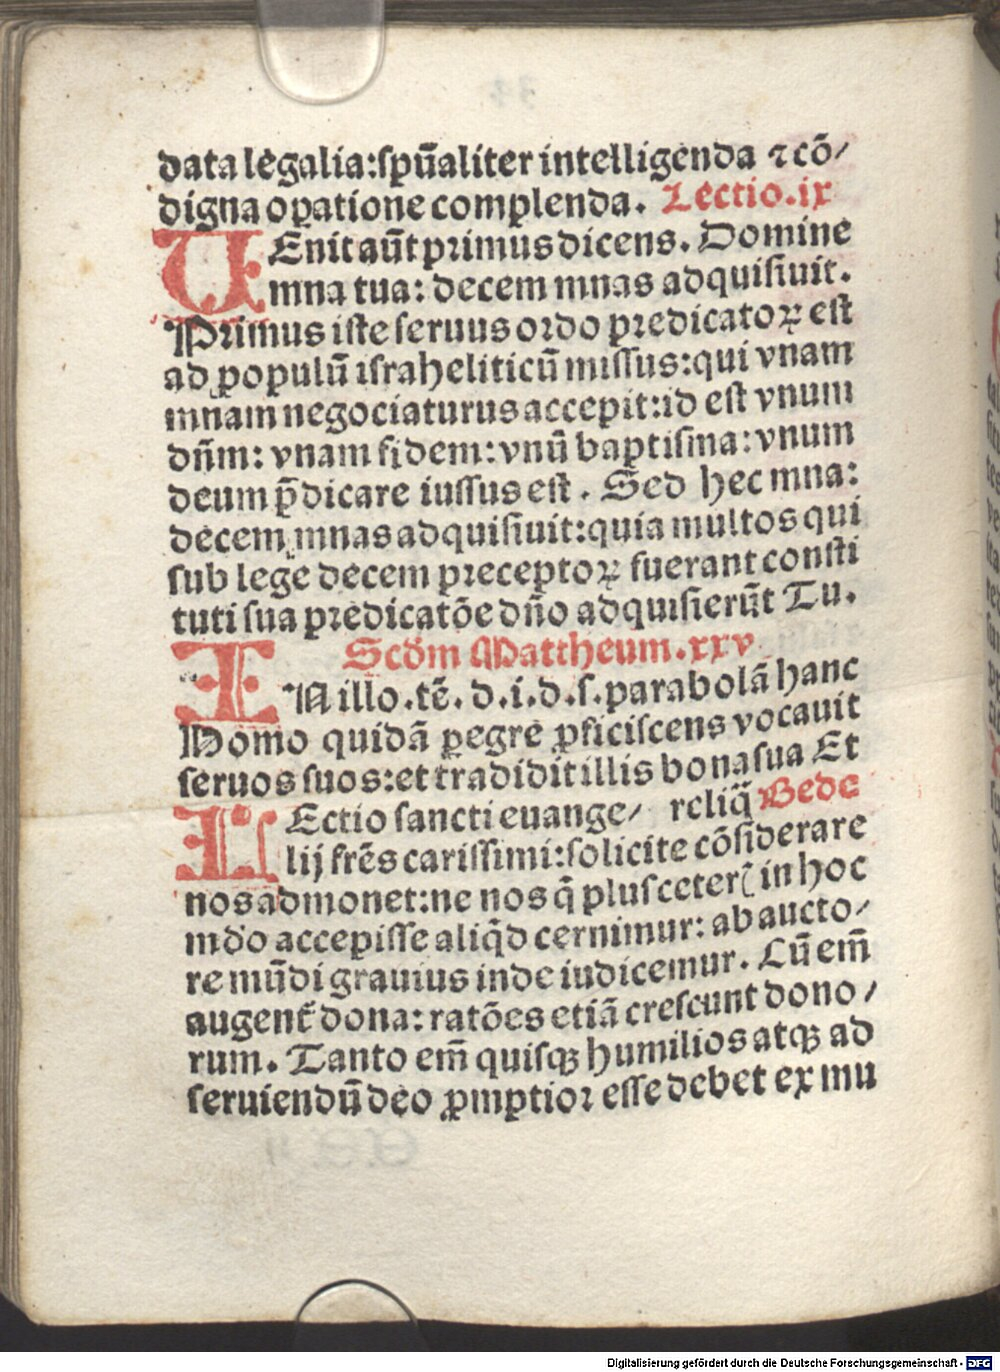 data legalia:spūaliter intelligenda ⁊ cō/
digna oꝑatione complenda. Lectio.ix
UEnit aūt primus dicens. Domine
mna tua: decem mnas adquisiuit.
Primus iste seruus ordo predicatoꝝ est
ad populū israheliticū missus:qui vnam
mnam negociaturus accepit:id est vnum
dn̄m: vnam fidem:vnū baptisma:vnum
deum p̄dicare iussus est. Sed hec mna:
decem mnas adquisiuit:quia multos qui
sub lege decem preceptoꝝ fuerant consti
tuti sua predicatōe dn̄o adquisierūt Tu.
Scd̄m Mattheum.xxv
IN illo.tē.d.i.d.s.parabolā hanc
Homo quidā ꝑegre ꝓficiscens vocauit
seruos suos:et tradidit illis bona sua Et
LEctio sancti euange/ reliq̄ Bede
lij frēs carissimi:solicite cōsiderare
nos admonet:ne nos q̄ plus ceteri in hoc
mūdo accepisse aliq̄d cernimur: ab aucto/
re mūdi grauius inde iudicemur. Cū em̄
augent̄ dona: ratōes etiā crescunt dono/
rum. Tanto em̄ quisqꝫ humilios atqꝫ ad
seruiendū deo ꝓmptior esse debet ex mu
Digitalisierung gefördert durch die Deutsche Forschungsgemeinschaft - DFG